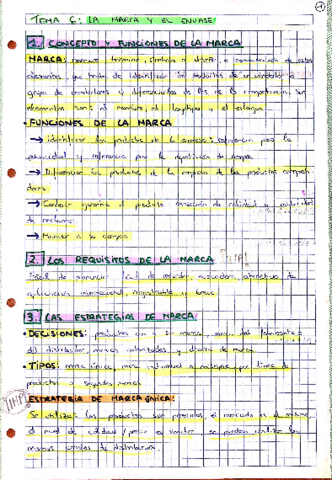 TEMA 6: LA MARCA Y EL ENVASE
1. CONCEPTO Y FUNCIONES DE LA MARCA
MARCA: nombre, término, símbolo o diseño o combinación de estos
elementos que trata de identificar los productos de un vendedor o
grupo de vendedores y diferenciarlos de los de la competencia. Sus
elementos son: el nombre, el logotipo y el eslogan.
• FUNCIONES DE LA MARCA
→ Identificar los productos de la empresa: referencia para la
publicidad y referencia para la repetición de compra
→ Diferenciar los productos de la empresa de los productos competi-
dores
→ Conferir garantía al producto
de reclamo
→ a su compra
2. LOS REQUISITOS DE LA MARCA
Fácil de pronunciar, fácil de recordar, evocador, atractivo, de
aplicación internacional, registrable y breve.
3. LAS ESTRATEGIAS DE MARCA
• DECISIONES: productos con o sin marca, marca del fabricante o
del distribuidor, marcas y diseño de marca
• TIPOS: marca única, marca individual o múltiple, por línea de
productos o segundas marcas
ESTRATEGIA DE MARCA ÚNICA:
Se utiliza: los productos son el mercado es el mismo,
el nivel de calidad / precio es similar, se pueden utilizar los
mismos canales de distribución.